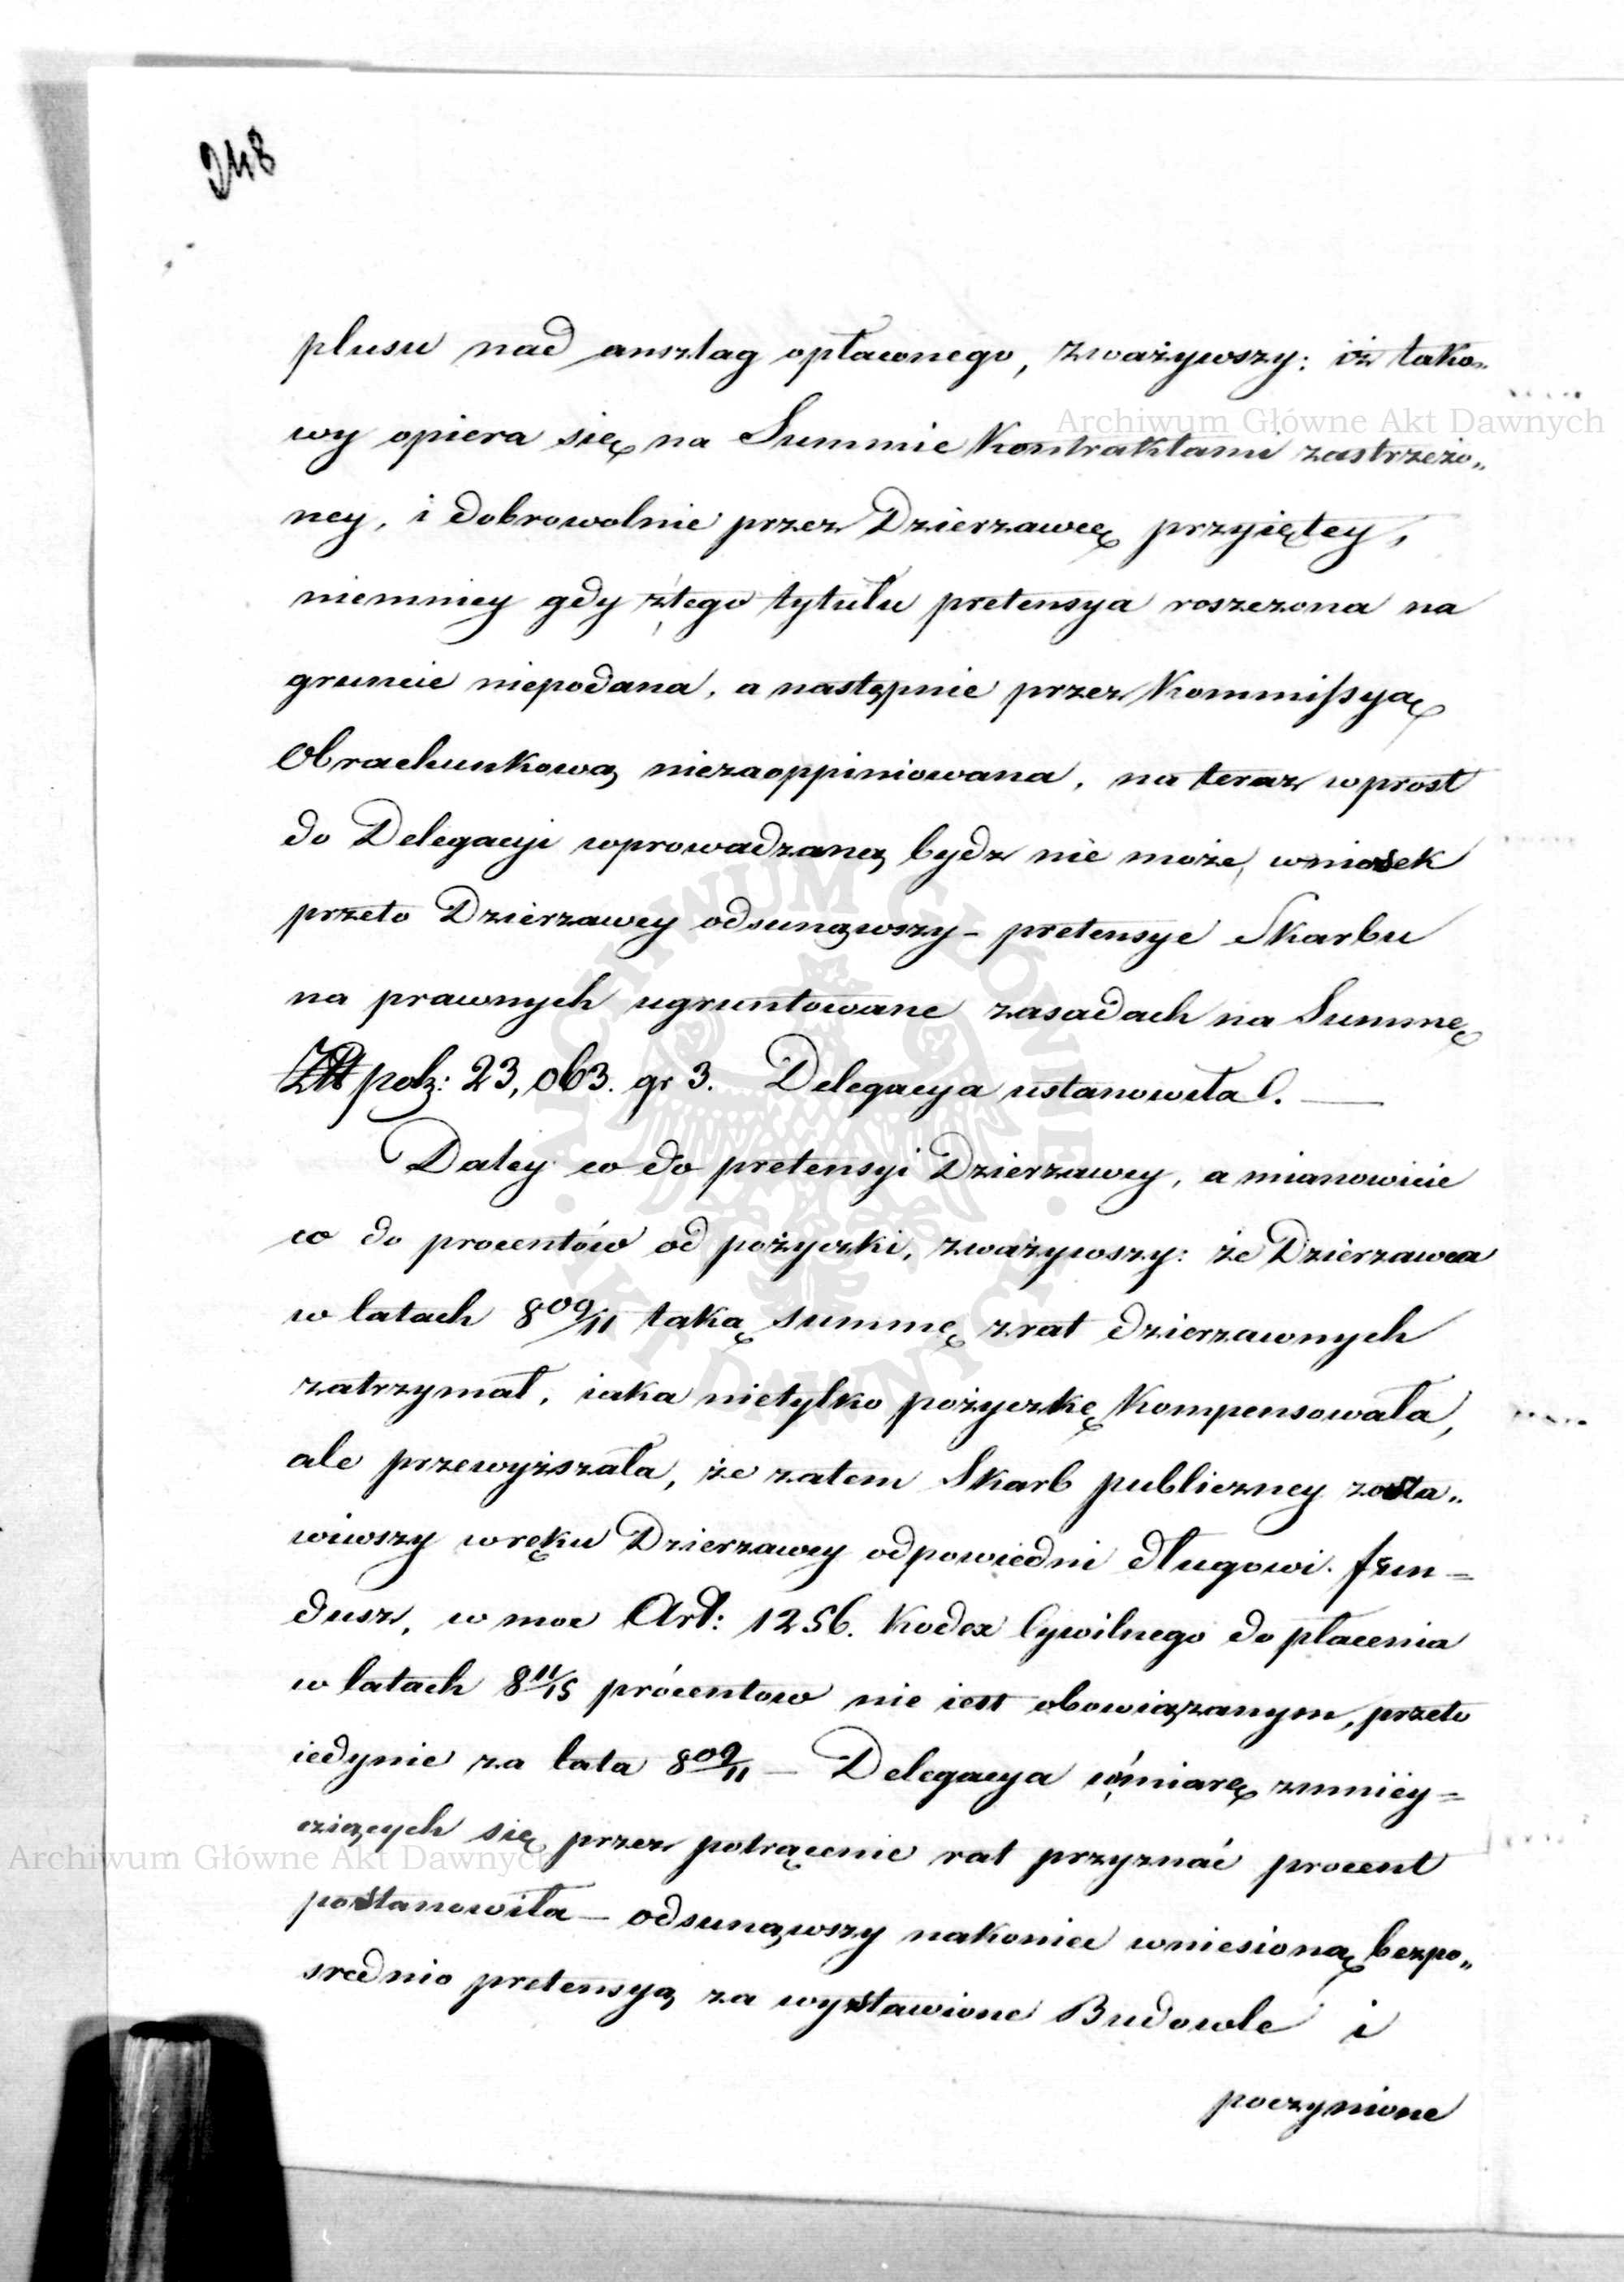 248
plusu nad anszlag opłacanego, zważywszy: iż tako„
wy opiera się na Summie Kontraktami zastrzeżo„
ney, i dobrowolnie przez Dzierzawcę przyiętey,
niemniey gdy z tego tytułu pretensya roszczona na
gruncie niepodana, a następnie przez Kommissyą
Obrachunkową niezaoppiniowana, na teraz wprost
do Delegacyi wprowadzaną bydz nie może, wniosek
przeto Dzierzawcy odsunąwszy – pretensye Skarbu
na prawnych ugruntowane zasadach na Summę
Złt pols: 23,063. gr 3. Delegacya ustanowiła. —
Daley co do pretensyi Dzierzawcy, a mianowicie
co do procentów od pożyczki, zważywszy: że Dzierzawca
w latach 809/11 taką summę z rat dzierzawnych
zatrzymał, iaka nietylko pożyczkę kompensowała,
ale przewyższała, że zatem Skarb publiczney zosta„
wiwszy w ręku Dzierzawcy odpowiedni długowi fun=
dusz, w moc Art: 1256. Kodex Cywilnego do płacenia
w latach 811/15 prócentow nie iest obowiązanym, przeto
iedynie za lata 809/11 – Delegacya w miarę zmniey=
eziących się przez potrącenie rat przyznać procent
postanowiła – odsunąwszy nakoniec wniesioną bezpo„
srednio pretensyą za wystawione Budowle i
poczynione
Archiwum Główne Akt Dawnych
Archiwum Główne Akt Dawnych
ARCHIWUM GŁÓWNE AKT DAWNYCH